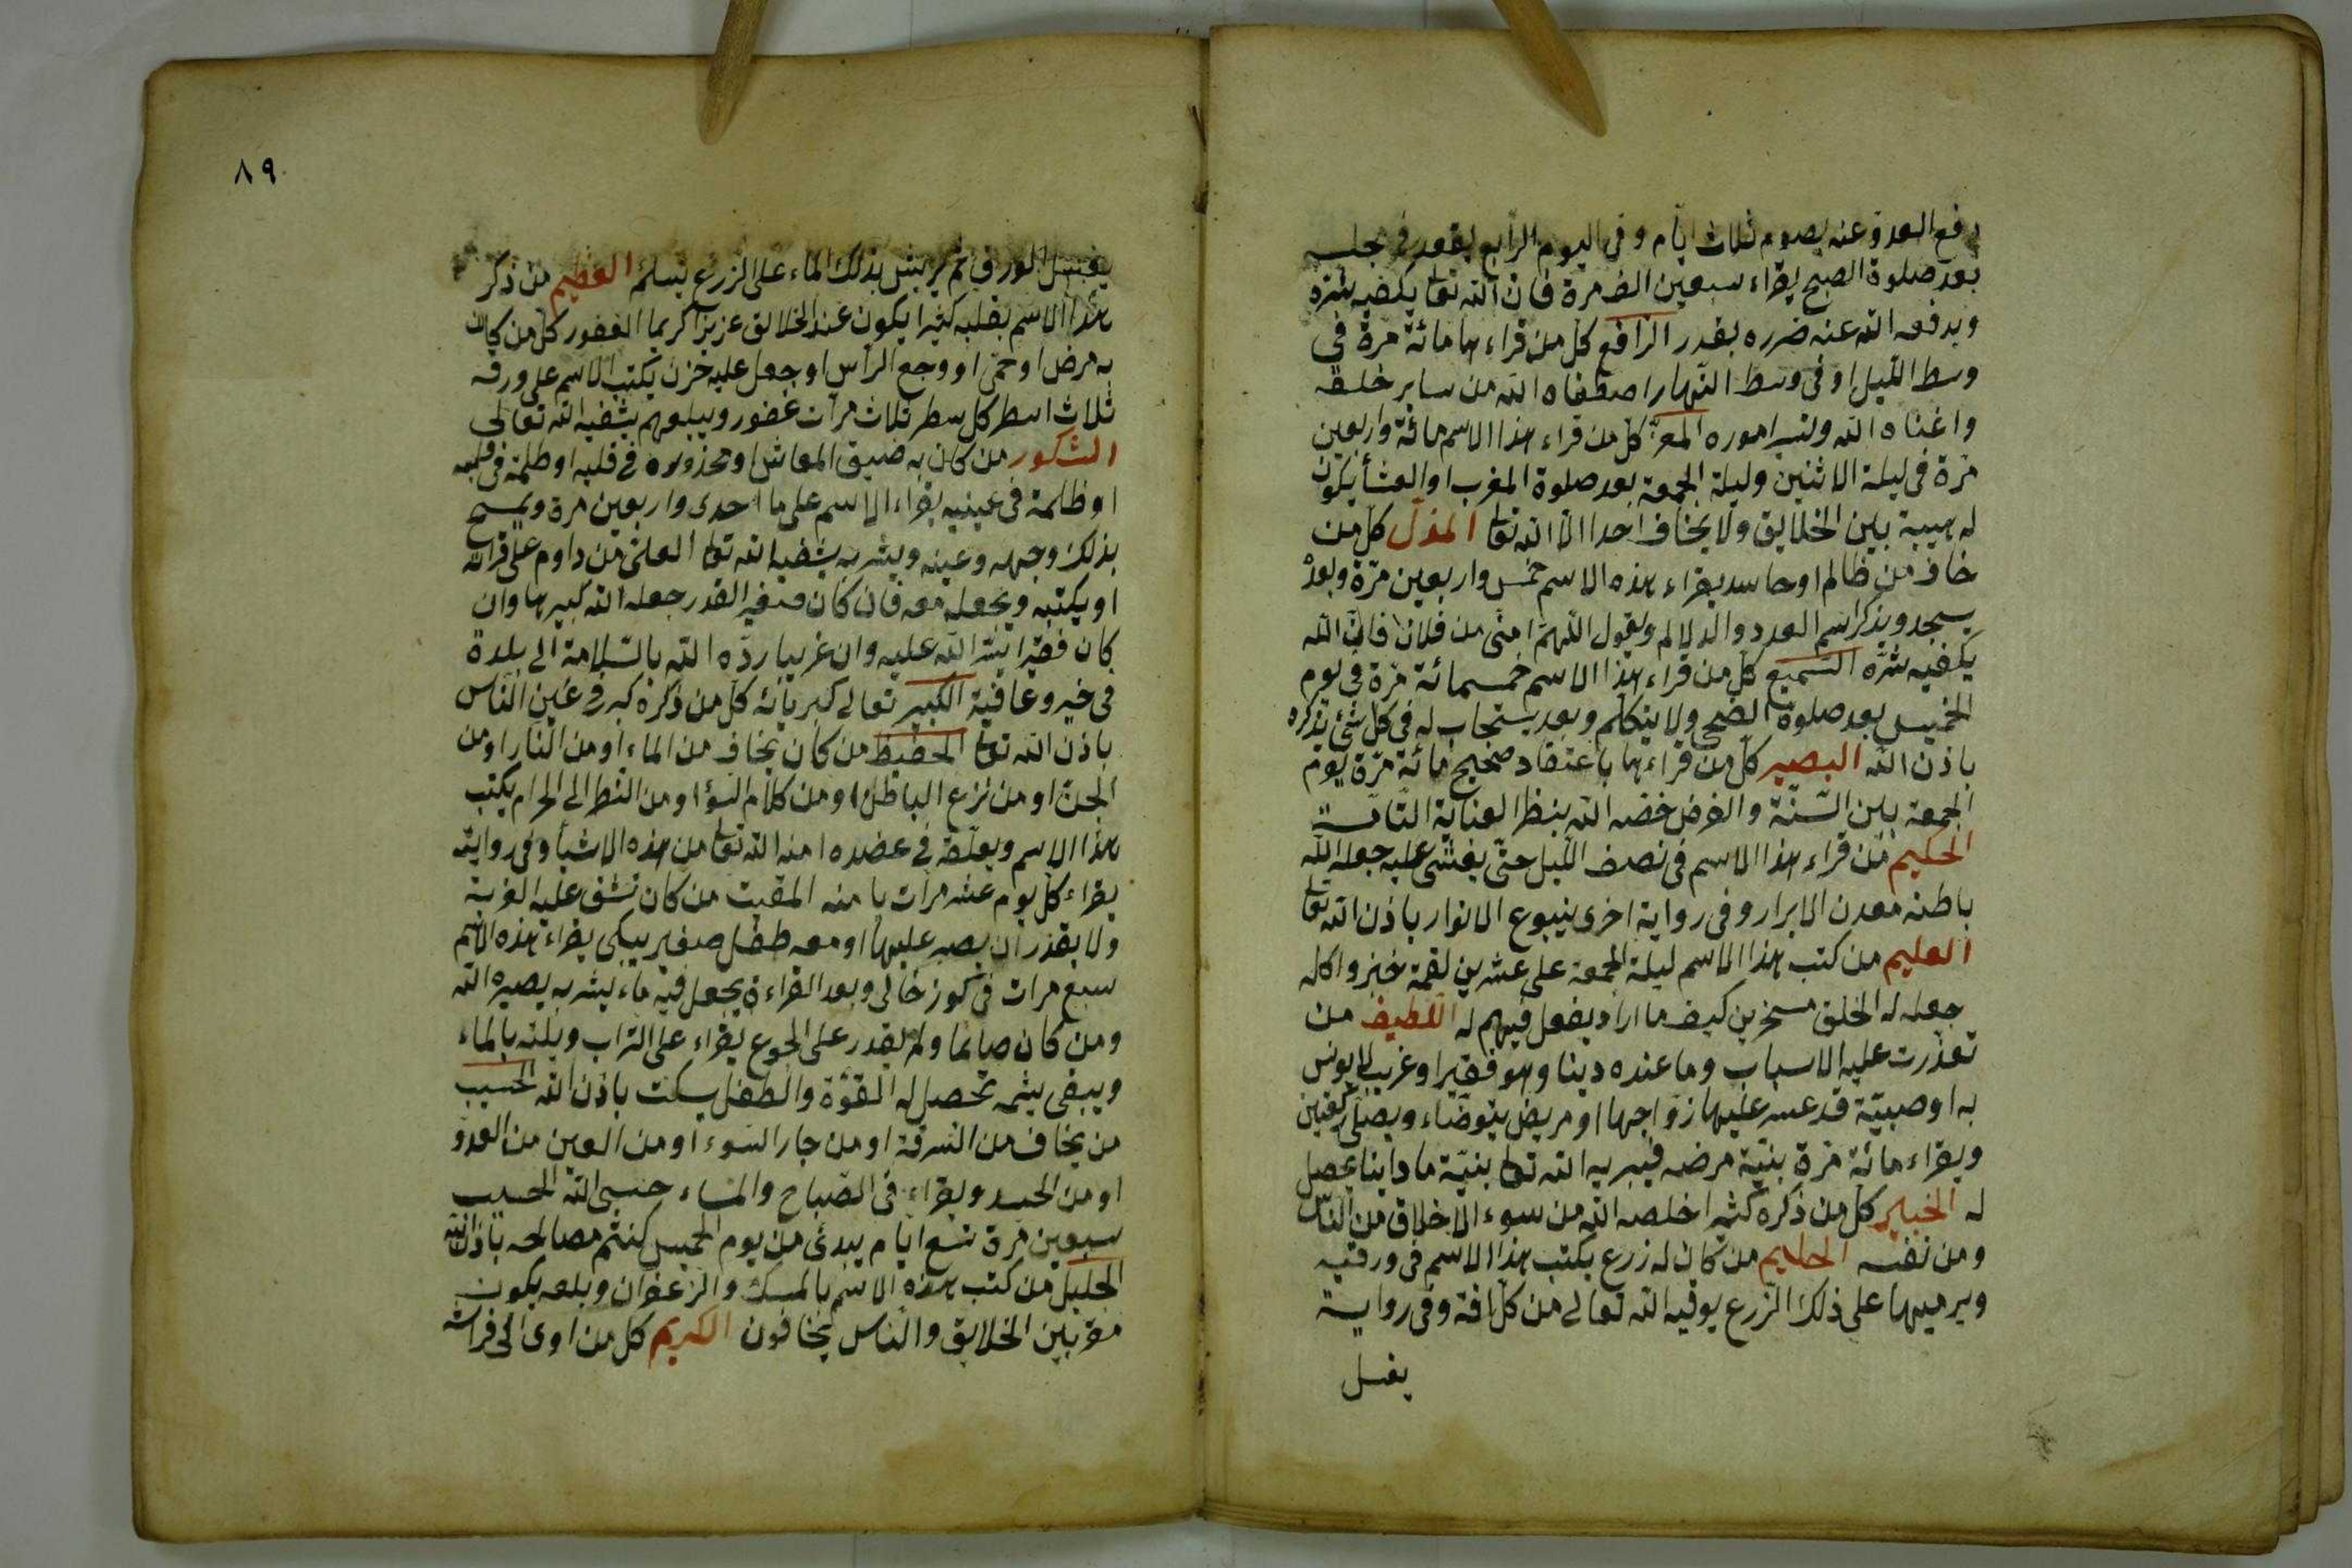 دفع العدو عنه يصوم ثلاث ايام وفى اليوم الرابع يقعد فى مجلسه
بعد صلوة الصبح يقراء سبعين الف مرة فان الله تعا يكفيه شره
ويدفعه الله عنه ضرره بقدر الرافع كل من قراءها مائة مرة فى
وسط الليل او فى وسط النهار اصطفاه الله من ساير خلقه
واغناه الله ويسر اموره المعز كل من قراء هذا الاسم مائة واربعين
مرة فى ليلة الاثنين وليلة الجمعة بعد صلوة المغرب او العشأ يكون
له هيبة بين الخلايق ولا يخاف احدا الا الله تعا المذل كل من
خاف من ظالم او حاسد يقراء هذه الاسم خمس واربعين مرة وبعد
يسجد ويذكر اسم العدد والد لالم ويقول اللهم امنى من فلان فان الله
يكفيه شره السميع كل من قراء هذا الاسم خمسمائة مرة فى يوم
الخميس بعد صلوة الضحى ولا يتكلم وبعد يستجاب له فى كل شئ تذكره
باذن الله البصير كل من قراءها باعتقاد صحيح مائة مرة يوم
الجمعة بين السنة والفرض خصه الله بنظر العناية التامة
الحكيم من قراء هذا الاسم فى نصف الليل حتى يغشى عليه جعل الله
باطنه معدن الابرار وفى رواية اخرى ينبوع الانوار باذن الله تعا
العليم من كتب هذا الاسم ليلة الجمعة على عشرين لقمة خبز واكله
جعله له الخلق مسخرين كيف ما اراد يفعل فيهم له اللطيف من
تعذرت عليه الاسباب وما عنده دينا وهو فقيرا وغريب لا يونس
به او صبية قد عسر عليها زواجها او مريض يتوضاء ويصلى ركعتين
ويقراء مائة مرة بنية مرضه فيبريه الله تعا بنية ما دا ينا يحصل
له الخبير كل من ذكره كثيرا خلصه الله من سوء الاخلاق من الناس
ومن نفسه الحليم من كان له زرع يكتب هذا الاسم فى ورقيه
ويرميها على ذلك الزرع يوقيه الله تعالى من كل افة وفى رواية
يغسل
٨٩
يغسل الورق ثم يريش بذلك الماء على الزرع يسلم العظيم من ذكر
هذا الاسم بقلبه كثيرا يكون عند الخلايق عزيزا كريما الغفور كل من كان
به مرض او حمى او وجع الرأس او جعل عليه حزن يكتب الاسم على ورقه
ثلاث اسطر كل سطر ثلاث مرات غفور ويبلعهم يشفيه الله تعالى
الشكور من كان به ضيق المعاش او محذوره فى قلبه او ظلمة فى قلبه
او ظلمة فى عينيه يقراء الاسم على ما احدى واربعين مرة ويمسح
بذلك وجهه وعينه ويشربه يشفيه الله تعا العلى من داوم على قراءته
او يكتبه ويجعله معه فان كان صغير القدر جعله الله كبيرها وان
كان فقيرا يسر الله عليه وان غريبا رده الله بالسلامة الى بلدة
فى خير وعافية الكبير تعالى كبريائه كل من ذكره كبر فى عين الناس
باذن الله تعا الحفيظ من كان يخاف من الماء او من النار او من
الجن او من نزع الباطل او من كلام السؤ او من النظر الى الحرام يكتب
هذا الاسم ويعلقه فى عضده امنه الله تعا من هذه الاشيأ وفى رواية
يقراء كل يوم عشر مرات يامنه المقيت من كان تشق عليه الغربة
ولا يقدر ان يصبر عليها او معه طفل صغير يبكى يقراء هذه الاسم
سبع مرات فى كوز خالى وبعد القراءة يجعل فيه ماء يشربه يصيره الله
ومن كان صايما ولم يقدر على الجوع يقراء على التراب ويبلته بالماء
ويبقى يشمه تحصل له القوة والطفل يسكت باذن الله الحسيب
من يخاف من السرقة او من جار السوء او من العين من العدو
او من الحسد ويقراء فى الصباح والمساء حسبى الله الحسيب
سبعين مرة تسع ايام يبدئ من يوم الخميس كنتم مصالحه باذن الله
الجليل من كتب هذه الاسم بالمسك والزعفران وبلعه يكون
مقر بين الخلايق والناس يخافون الكريم كل من اوى الى فراشه